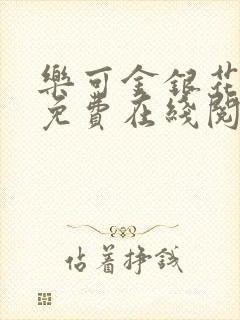 樂可金銀花
免費在綫閱
佔着掙錢